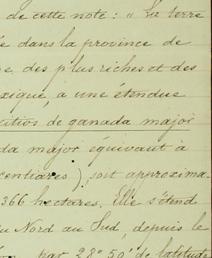 de cette note : "La terre
dans la province de
des plus riches et des
xique, a une étendue
sitios de ganada major
da major équivaut à
centiares), soit approxima
366 hectares. Elle s'étend
u Nord au Sud, depuis le
par 28° 50' de latitude